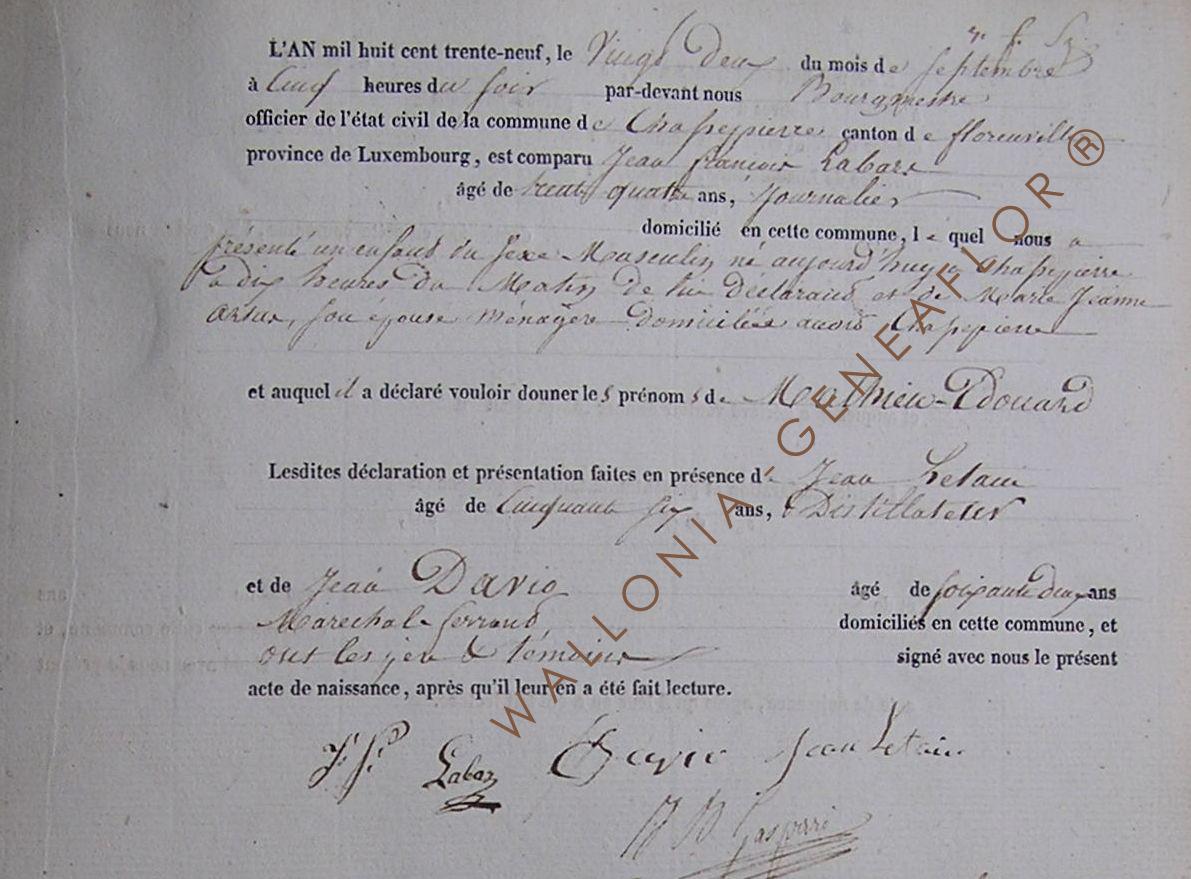 L'AN mil huit cent trente-neuf, le Vingt Deux du mois de Septembre
à Cinq heures du soir par-devant nous Bourgmestre
officier de l'état civil de la commune de Chassepierre canton de florenville
province de Luxembourg, est comparu Jean françois Labars
âgé de trente quatre ans, Journalier
domicilié en cette commune, le quel nous a
présenté un enfant du sexe Masculin né aujourd'huy a Chassepierre
a dix heures du Matin de lui Déclarand et de Marie Jeanne
son épouse Ménagère Domiciliée audit Chassepierre
et auquel il a déclaré vouloir donner les prénoms de Mathieu-Edouard
Lesdites déclaration et présentation faites en présence de Jean Letain
âgé de Cinquante six ans, Distillateur
et de Jean David âgé de soixante deux ans
Marechal ferrand domiciliés en cette commune, et
ont les père & témoins signé avec nous le présent
acte de naissance, après qu'il leur en a été fait lecture.
J. f. Labar Jean Letain
Gaspard
WALLONIA-GENEAFLOR ®